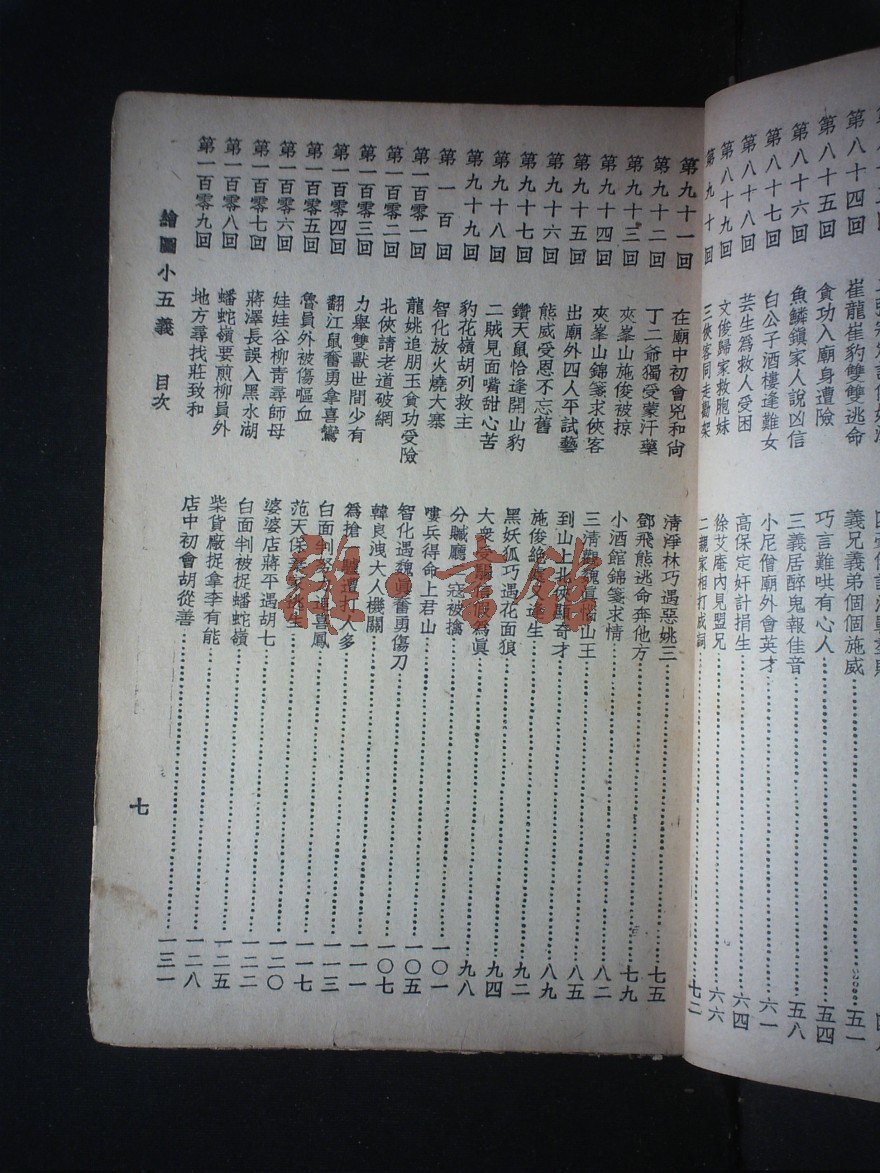 第八十四回 崔龍崔豹雙雙逃命 義兄義弟個個施威 五一
第八十五回 貪功入廟身遭險 巧言難哄有心人 五四
第八十六回 魚鱗鎭家人說凶信 三義居醉鬼報佳音 五八
第八十七回 白公子酒樓逢難女 小尼僧廟外會英才 六一
第八十八回 芸生爲救人受困 高保定奸計捐生 六四
第八十九回 文俊歸家救胞妹 徐艾庵內見盟兄 六六
第九十回 三俠客同走勸架 二親家相打成詞 七二
第九十一回 在廟中初會兇和尙 淸淨林巧遇惡姚三 七五
第九十二回 丁二爺獨受蒙汗藥 鄧飛熊逃命奔他方 七九
第九十三回 夾峯山施俊被掠 小酒館錦箋求情 八二
第九十四回 夾峯山錦箋求俠客 三淸觀魏眞惱山王 八五
第九十五回 出廟外四人平試藝 到山上北俠顯奇才 八九
第九十六回 熊威受恩不忘舊 施俊絕處逢生 九二
第九十七回 鑽天鼠恰逢開山豹 黑妖狐巧遇花面狼 九四
第九十八回 二賊見面嘴甜心苦 大衆受騙信假爲眞 九八
第九十九回 豹花嶺胡列救主 分贓廳 寇被擒 一〇一
第一百回 智化放火燒大寨 嘍兵得命上君山 一〇五
第一百零一回 龍姚追朋玉貪功受險 智化遇魏眞奮勇傷刀 一〇七
第一百零二回 北俠請老道破網 韓良洩大人機關 一一一
第一百零三回 力舉雙獸世間少有 爲搶 遭打人多 一一三
第一百零四回 翻江鼠奮勇拿喜鸞 白面判 追喜鳳 一一七
第一百零五回 魯員外被傷嘔血 范天保 逃生 一二〇
第一百零六回 娃娃谷柳靑尋師母 婆婆店蔣平遇胡七 一二二
第一百零七回 蔣澤長誤入黑水湖 白面判被捉蟠蛇嶺 一二五
第一百零八回 蟠蛇嶺要煎柳員外 柴貨廠捉拿李有能 一二八
第一百零九回 地方尋找莊致和 店中初會胡從善 一三一
繪圖小五義 目次
七